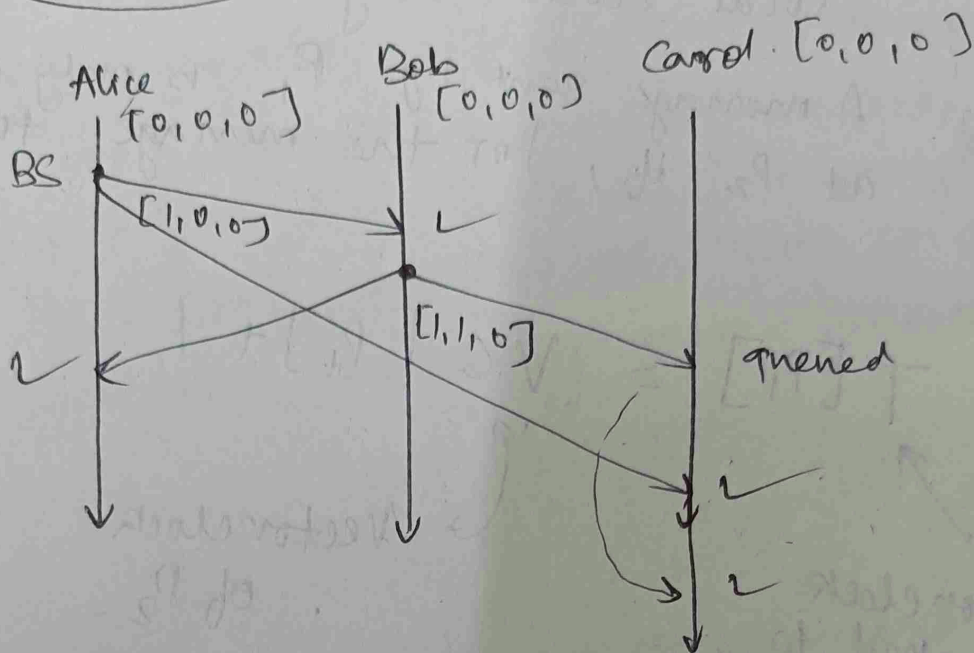 Alice
[0,0,0]
Bob
[0,0,0]
Carol. [0,0,0]
BS
[1,0,0]
[1,1,0]
queued